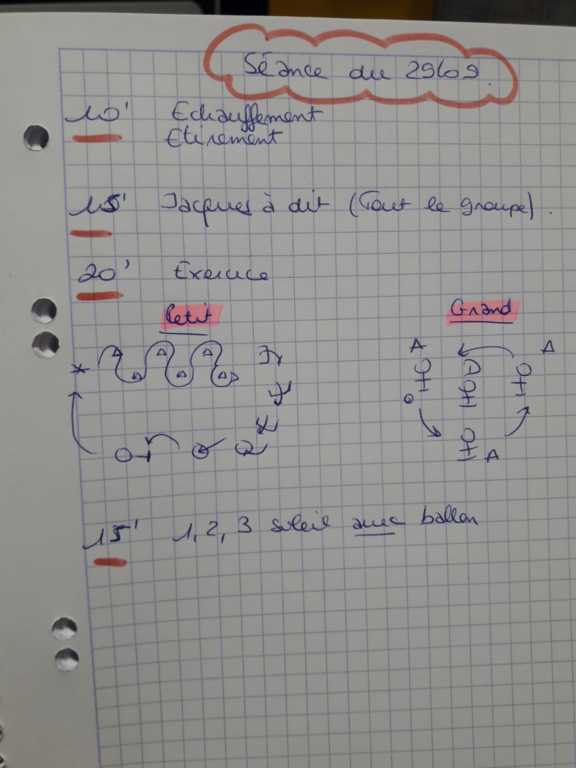 Séance du 29/09.
10' Echauffement
Etirement
15' Jacques à dit (Tout le groupe).
20' Exercice
Petit Grand
A A
D
A
15' 1, 2, 3 soleil avec ballon